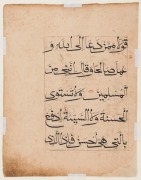 قولا ممن دعا الى الله و
عمل صالحا وقال انني من
المسلمين ولا تستوى
الحسنة ولا السيئة ادفع
بالتى هى احسن فاذا الذى